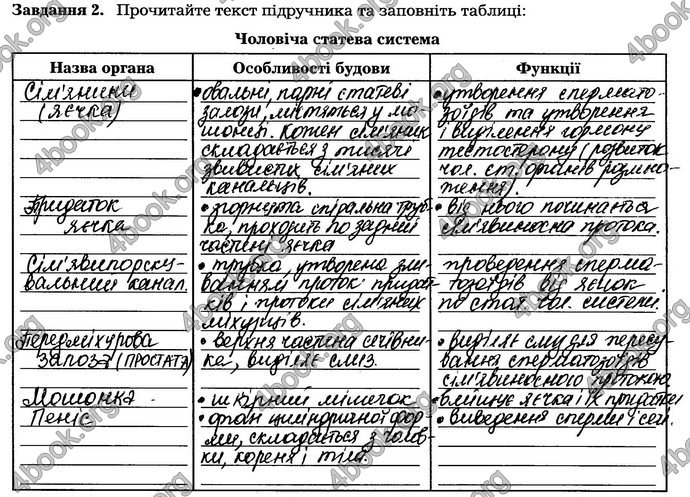 Завдання 2. Прочитайте текст підручника та заповніть таблиці:
Чоловіча статева система
Назва органа
Особливості будови
Функції
Сім'яники
(яєчка)
• овальні, парні статеві
залози, містяться у мо-
шонці. Кожен сім'яник
складається з тисячі
звивистих сім'яних
канальців.
• утворення спермато-
зоїдів та утворення
і виділення гормону
тестостерону (розвиток
чол. ст. органів розмно-
ження).
Придаток
яєчка
• згорнута спіральна труб-
ка, проходить по задній
частині яєчка
• від нього починається
сім'явиносна протока.
Сім'явипорску-
вальний канал.
• трубка, утворена зли-
ванням проток: придат-
ків і протоки сім'яних
міхурців.
проведення сперма-
тозоїдів від яєчок
по стат. чол. системі.
Передміхурова
залоза (ПРОСТАТА)
• верхня частина сечівни-
ка, виділяє слиз.
• виділяє слиз для пересу-
вання сперматозоїдів
сім'явиносною протокою
Мошонка
• шкірний мішечок
• вміщує яєчка і їх придатки
Пеніс
• орган циліндричної фор-
ми, складається з голов-
ки, кореня і тіла.
• виведення сперми і сечі.
4book.org